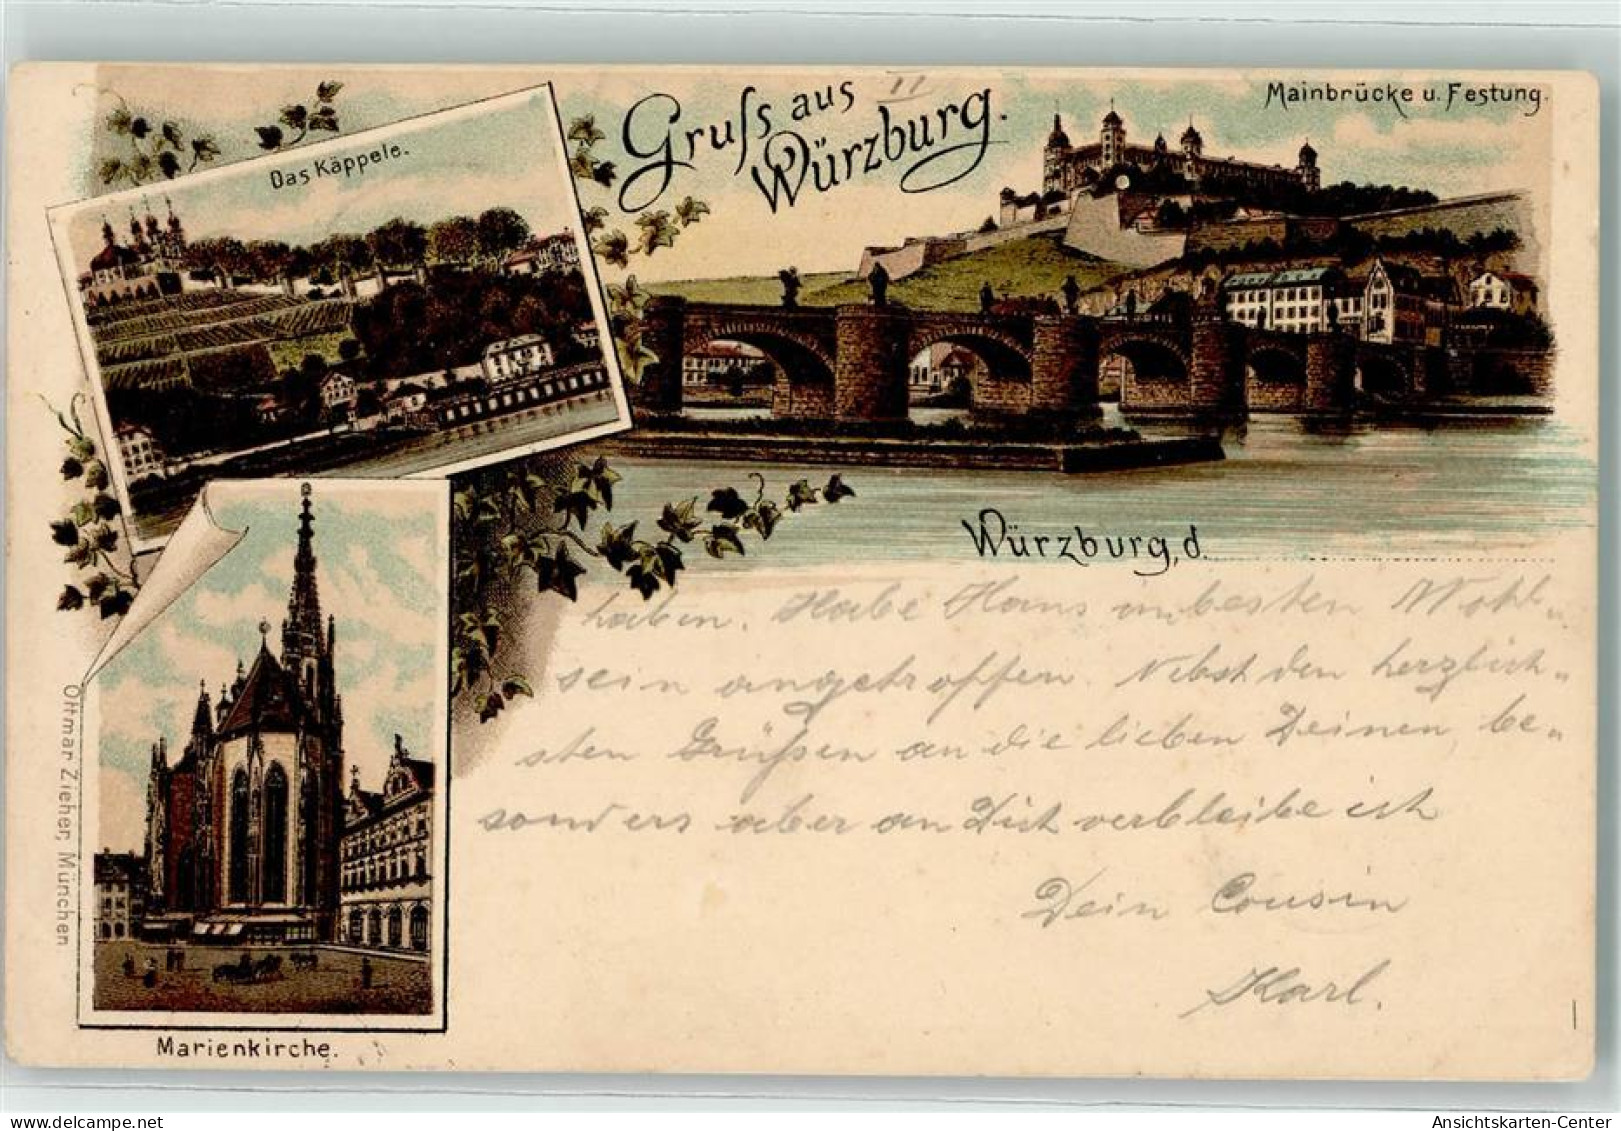 Gruſs aus
Würzburg.
II
Mainbrücke u. Festung.
Das Käppele.
Würzburg, d.
haben. Habe Hans im besten Wohl-
sein angetroffen. Nebst den herzlich-
sten Grüßen an die lieben Deinen, be-
sonders aber an Dich verbleibe ich
Dein Cousin
Karl.
Ottmar Zieher, München
Marienkirche.
Ansichtskarten-Center